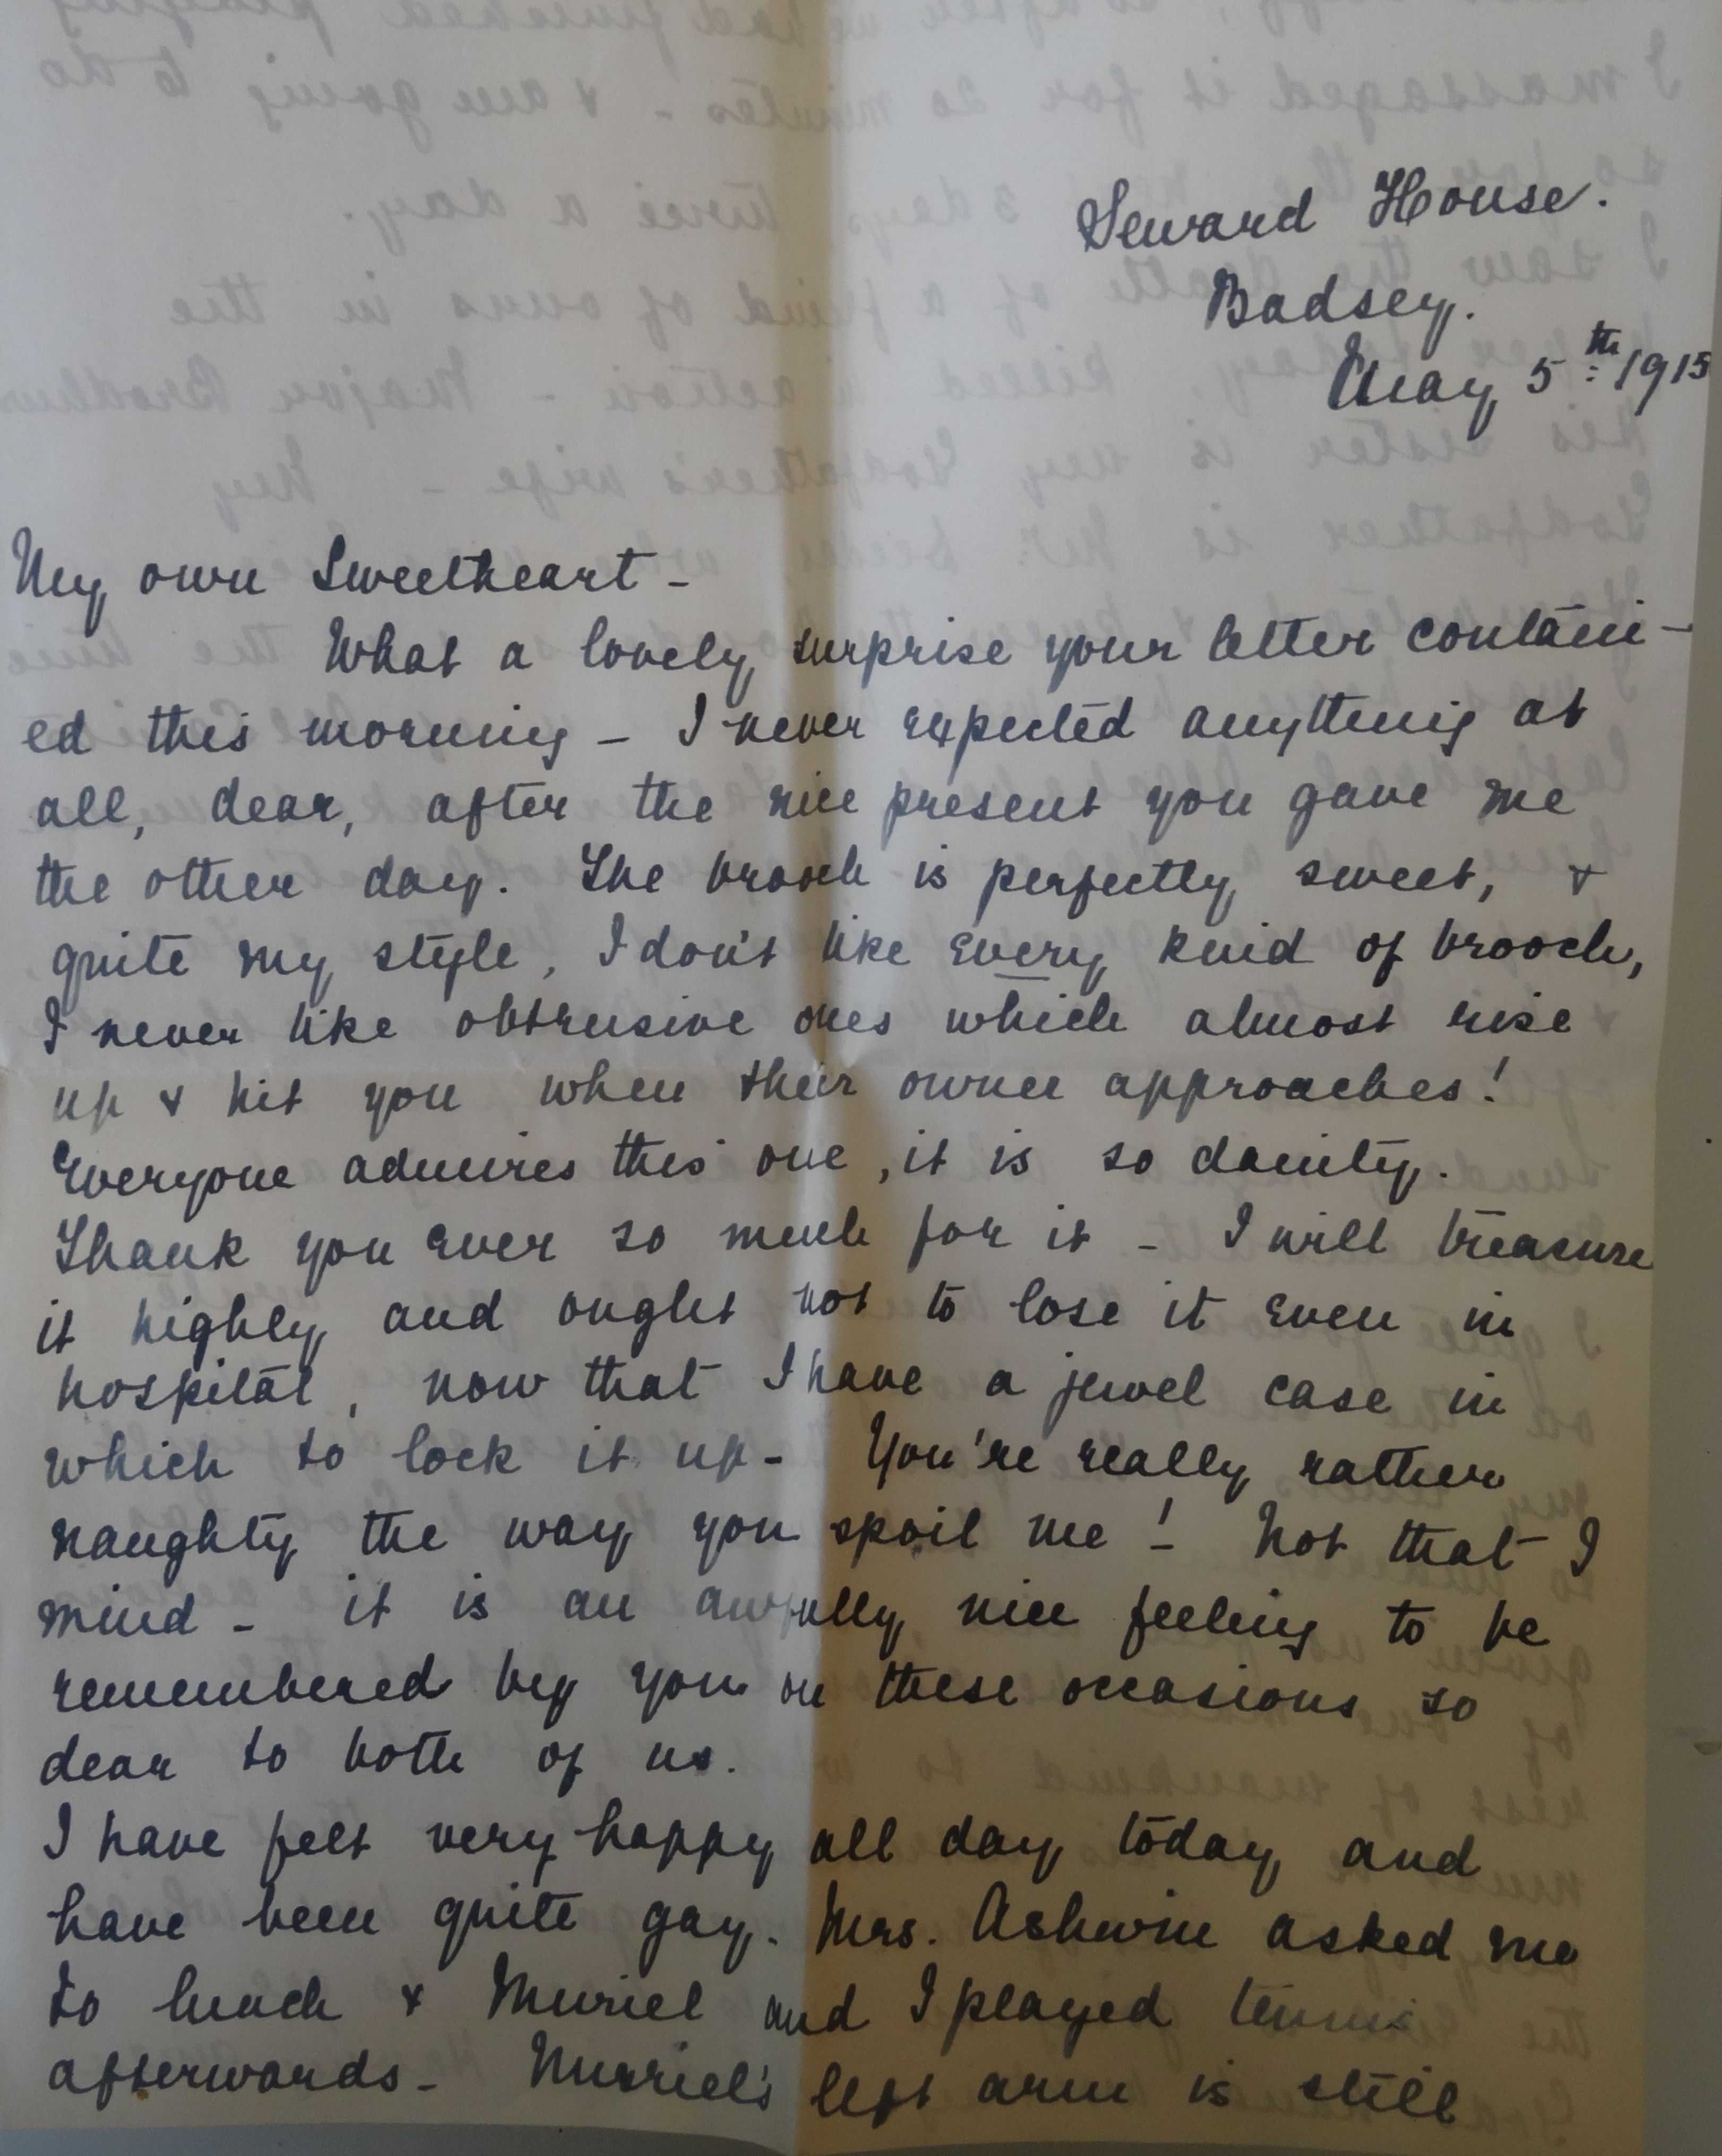 Seward House.
Badsey.
May 5th 1915
My own Sweetheart -
What a lovely surprise your letter contain-
ed this morning - I never expected anything at
all, dear, after the nice present you gave me
the other day. The brooch is perfectly sweet, &
quite my style, I don't like every kind of brooch,
I never like obtrusive ones which almost rise
up & hit you when their owner approaches!
Everyone admires this one, it is so dainty.
Thank you ever so much for it - I will treasure
it highly and ought not to lose it even in
hospital, now that I have a jewel case in
which to lock it up - You're really rather
naughty the way you spoil me! Not that I
mind - it is an awfully nice feeling to be
remembered by you on these occasions so
dear to both of us.
I have felt very happy all day today and
have been quite gay. Mrs. Ashwin asked me
to lunch & Muriel and I played tennis
afterwards - Muriel's left arm is still